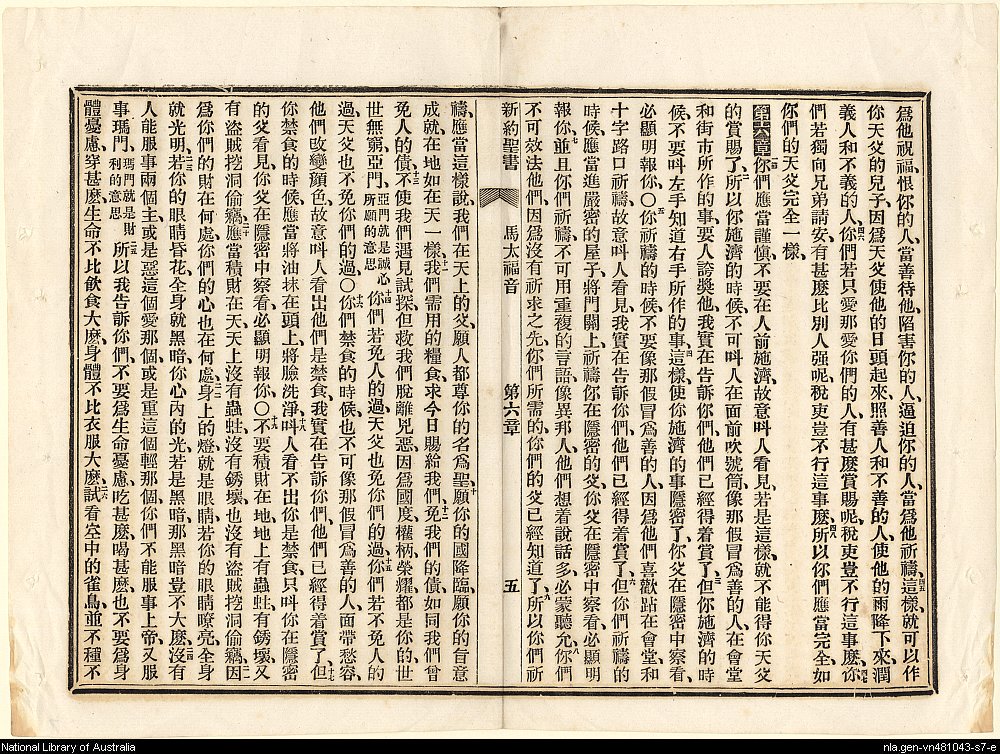 爲他祝福、恨你的人、當善待他、陷害你的人、逼迫你的人、當爲他祈禱、四五這樣、就可以作
你天父的兒子、因爲天父使他的日頭起來、照善人和不善的人、使他的雨降下來、潤
義人和不義的人、四六你們若只愛那愛你們的人、有甚麼賞賜呢、稅吏豈不行這事麼、四七你
們若獨向兄弟請安、有甚麼比別人强呢、稅吏豈不行這事麼、四八所以你們應當完全、如
你們的天父完全一樣、
第六章 一你們應當謹愼、不要在人前施濟、故意呌人看見、若是這樣、就不能得你天父
的賞賜了、二所以你施濟的時候、不可呌人在面前吹號筒、像那假冒爲善的人、在會堂
和街市所作的事、要人誇獎他、我實在告訴你們、他們已經得着賞了、三但你施濟的時
候、不要呌左手知道右手所作的事、四這樣、使你施濟的事隱密了、你父在隱密中察看、
必顯明報你、〇五你祈禱的時候、不要像那假冒爲善的人、因爲他們喜歡站在會堂和
十字路口祈禱、故意呌人看見、我實在告訴你們、他們已經得着賞了、六但你們祈禱的
時候、應當進嚴密的屋子、將門關上、祈禱你在隱密的父、你父在隱密中察看、必顯明
報你、七並且你們祈禱、不可用重複的言語、像異邦人、他們想着說話多必蒙聽允、八你們
不可效法他們、因爲沒有祈求之先、你們所需的、你們的父已經知道了、九所以你們祈
新約聖書 馬太福音 第六章 五
禱、應當這樣說、我們在天上的父、願人都尊你的名爲聖、十願你的國降臨、願你的旨意
成就、在地如在天一樣、十一我們需用的糧食、求今日賜給我們、十二免我們的債、如同我們曾
免人的債、十三不使我們遇見試探、但救我們脫離兇惡、因爲國度、權柄、榮耀、都是你的、世
世無窮、亞門、亞門就是誠心所願的意思 十四你們若免人的過、天父也免你們的過、十五你們若不免人的
過、天父也不免你們的過、〇十六你們禁食的時候、也不可像那假冒爲善的人、面帶愁容、
他們改變顏色、故意呌人看出他們是禁食、我實在告訴你們、他們已經得着賞了、十七但
你禁食的時候、應當將油抹在頭上、將臉洗淨、十八呌人看不出你是禁食、只呌你在隱密
的父看見、你父在隱密中察看、必顯明報你、〇十九不要積財在地、地上有蟲蛀、有銹壞、又
有盜賊挖洞偷竊、二十應當積財在天、天上沒有蟲蛀、沒有銹壞、也沒有盜賊挖洞偷竊、二一因
爲你們的財在何處、你們的心也在何處、二二身上的燈、就是眼睛、若你的眼睛瞭亮、全身
就光明、二三若你的眼睛昏花、全身就黑暗、你心內的光、若是黑暗、那黑暗豈不大麼、二四沒有
人能服事兩個主、或是惡這個愛那個、或是重這個輕那個、你們不能服事上帝、又服
事瑪門、瑪門就是財利的意思 二五所以我告訴你們、不要爲生命憂慮、吃甚麼、喝甚麼、也不要爲身
體憂慮、穿甚麼、生命不比飲食大麼、身體不比衣服大麼、二六試看空中的雀鳥、並不種不
National Library of Australia
nla.gen-vn481043-s7-e